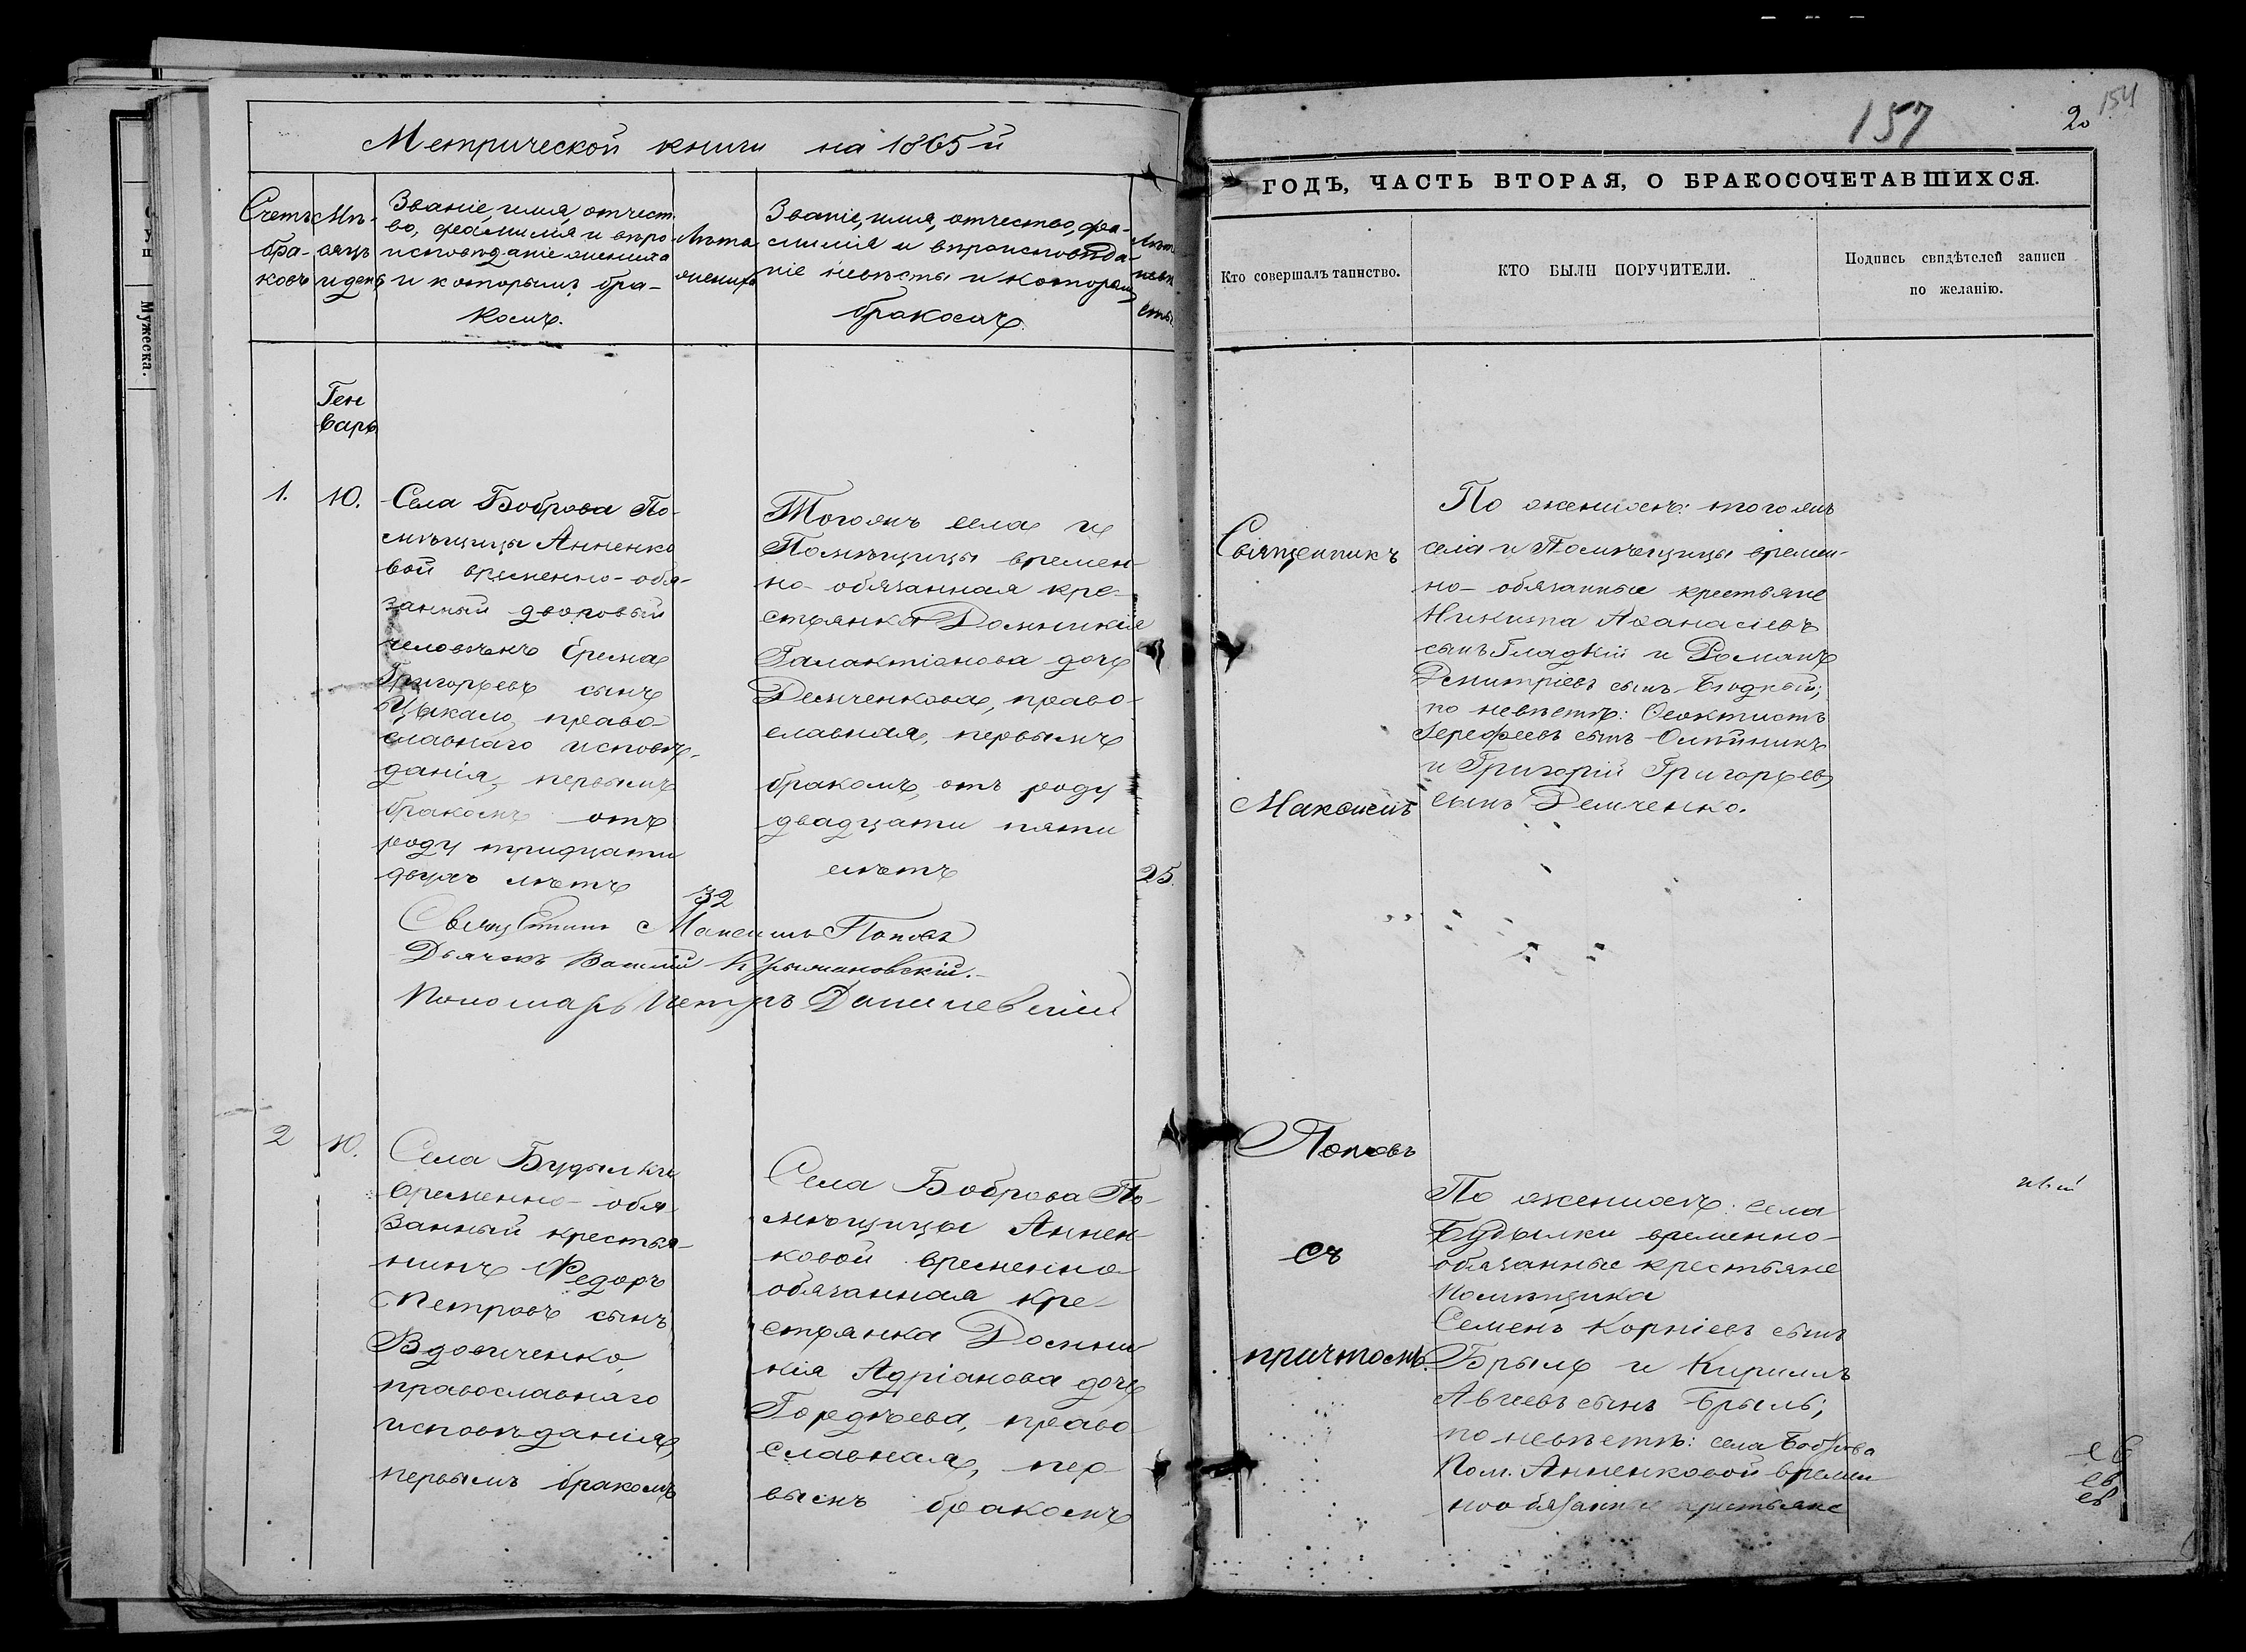 157
20
154
Метрической книги на 1865й
ГОДЪ, ЧАСТЬ ВТОРАЯ, О БРАКОСОЧЕТАВШИХСЯ.
Счетъ
бра-
ковъ
Мѣ-
сяцъ
и день
Званіе, имя, отчест
во, фамилія и вѣро
исповѣданіе жениха
и которымъ бра-
комъ.
Лѣта
жениха
Званіе, имя, отчество, фа-
милія и вѣроисповѣда-
ніе невѣсты и которымъ
бракомъ
Лѣта
невѣ
сты
Кто совершалъ таинство.
КТО БЫЛИ ПОРУЧИТЕЛИ.
Подпись свидѣтелей записи
по желанію.
Мужеска.
Ген
варь
1.
10.
Села Боброва По-
мѣщицы Анненко
вой временно-обя-
занный дворовый
человѣкъ Ерема
Григорьевъ сынъ
Цыкало, право-
славнаго исповѣ-
данія, первымъ
бракомъ отъ
роду тридцати
двухъ лѣтъ
32
Тогожъ села и
Помѣщицы времен-
но-обязанная кре-
стьянка Домникія
Галактіонова дочь
Демченкова, право-
славная, первымъ
бракомъ, отъ роду
двадцати пяти
лѣтъ
25.
Священникъ Максимъ Поповъ
Дьячекъ Василій
Пономарь Петръ Данилевскій
Священникъ
Максимъ
Поповъ
съ
причтомъ.
По женихѣ: тогожъ
села и Помѣщицы времен-
но-обязанные крестьяне
Никита Аѳанасіевъ
сынъ Гладкій и Романъ
Дмитріевъ сынъ
по невѣстѣ: Ѳеоктистъ
Іерофеевъ сынъ Олѣйникъ
и Григорій Григорьевъ
сынъ Демченко.
2
10.
Села Будылки
временно-обя-
занный крестья-
нинъ Федоръ
Петровъ сынъ
Вдовиченко,
православнаго
исповѣданія,
первымъ бракомъ
Села Боброва По-
мѣщицы Аннен-
ковой временно-
обязанная кре-
стьянка Домни-
кія Адріанова дочь
Гордѣева, право-
славная, пер-
вымъ бракомъ
По женихѣ: села
Будылки временно-
обязанные крестьяне
Помѣщика
Семенъ Корніевъ сынъ
Брыль и Кириллъ
Авіевъ сынъ Брыль;
по невѣстѣ: села Боброва
Пом. Анненковой времен
нообязанные крестьяне
ев
ев
ев